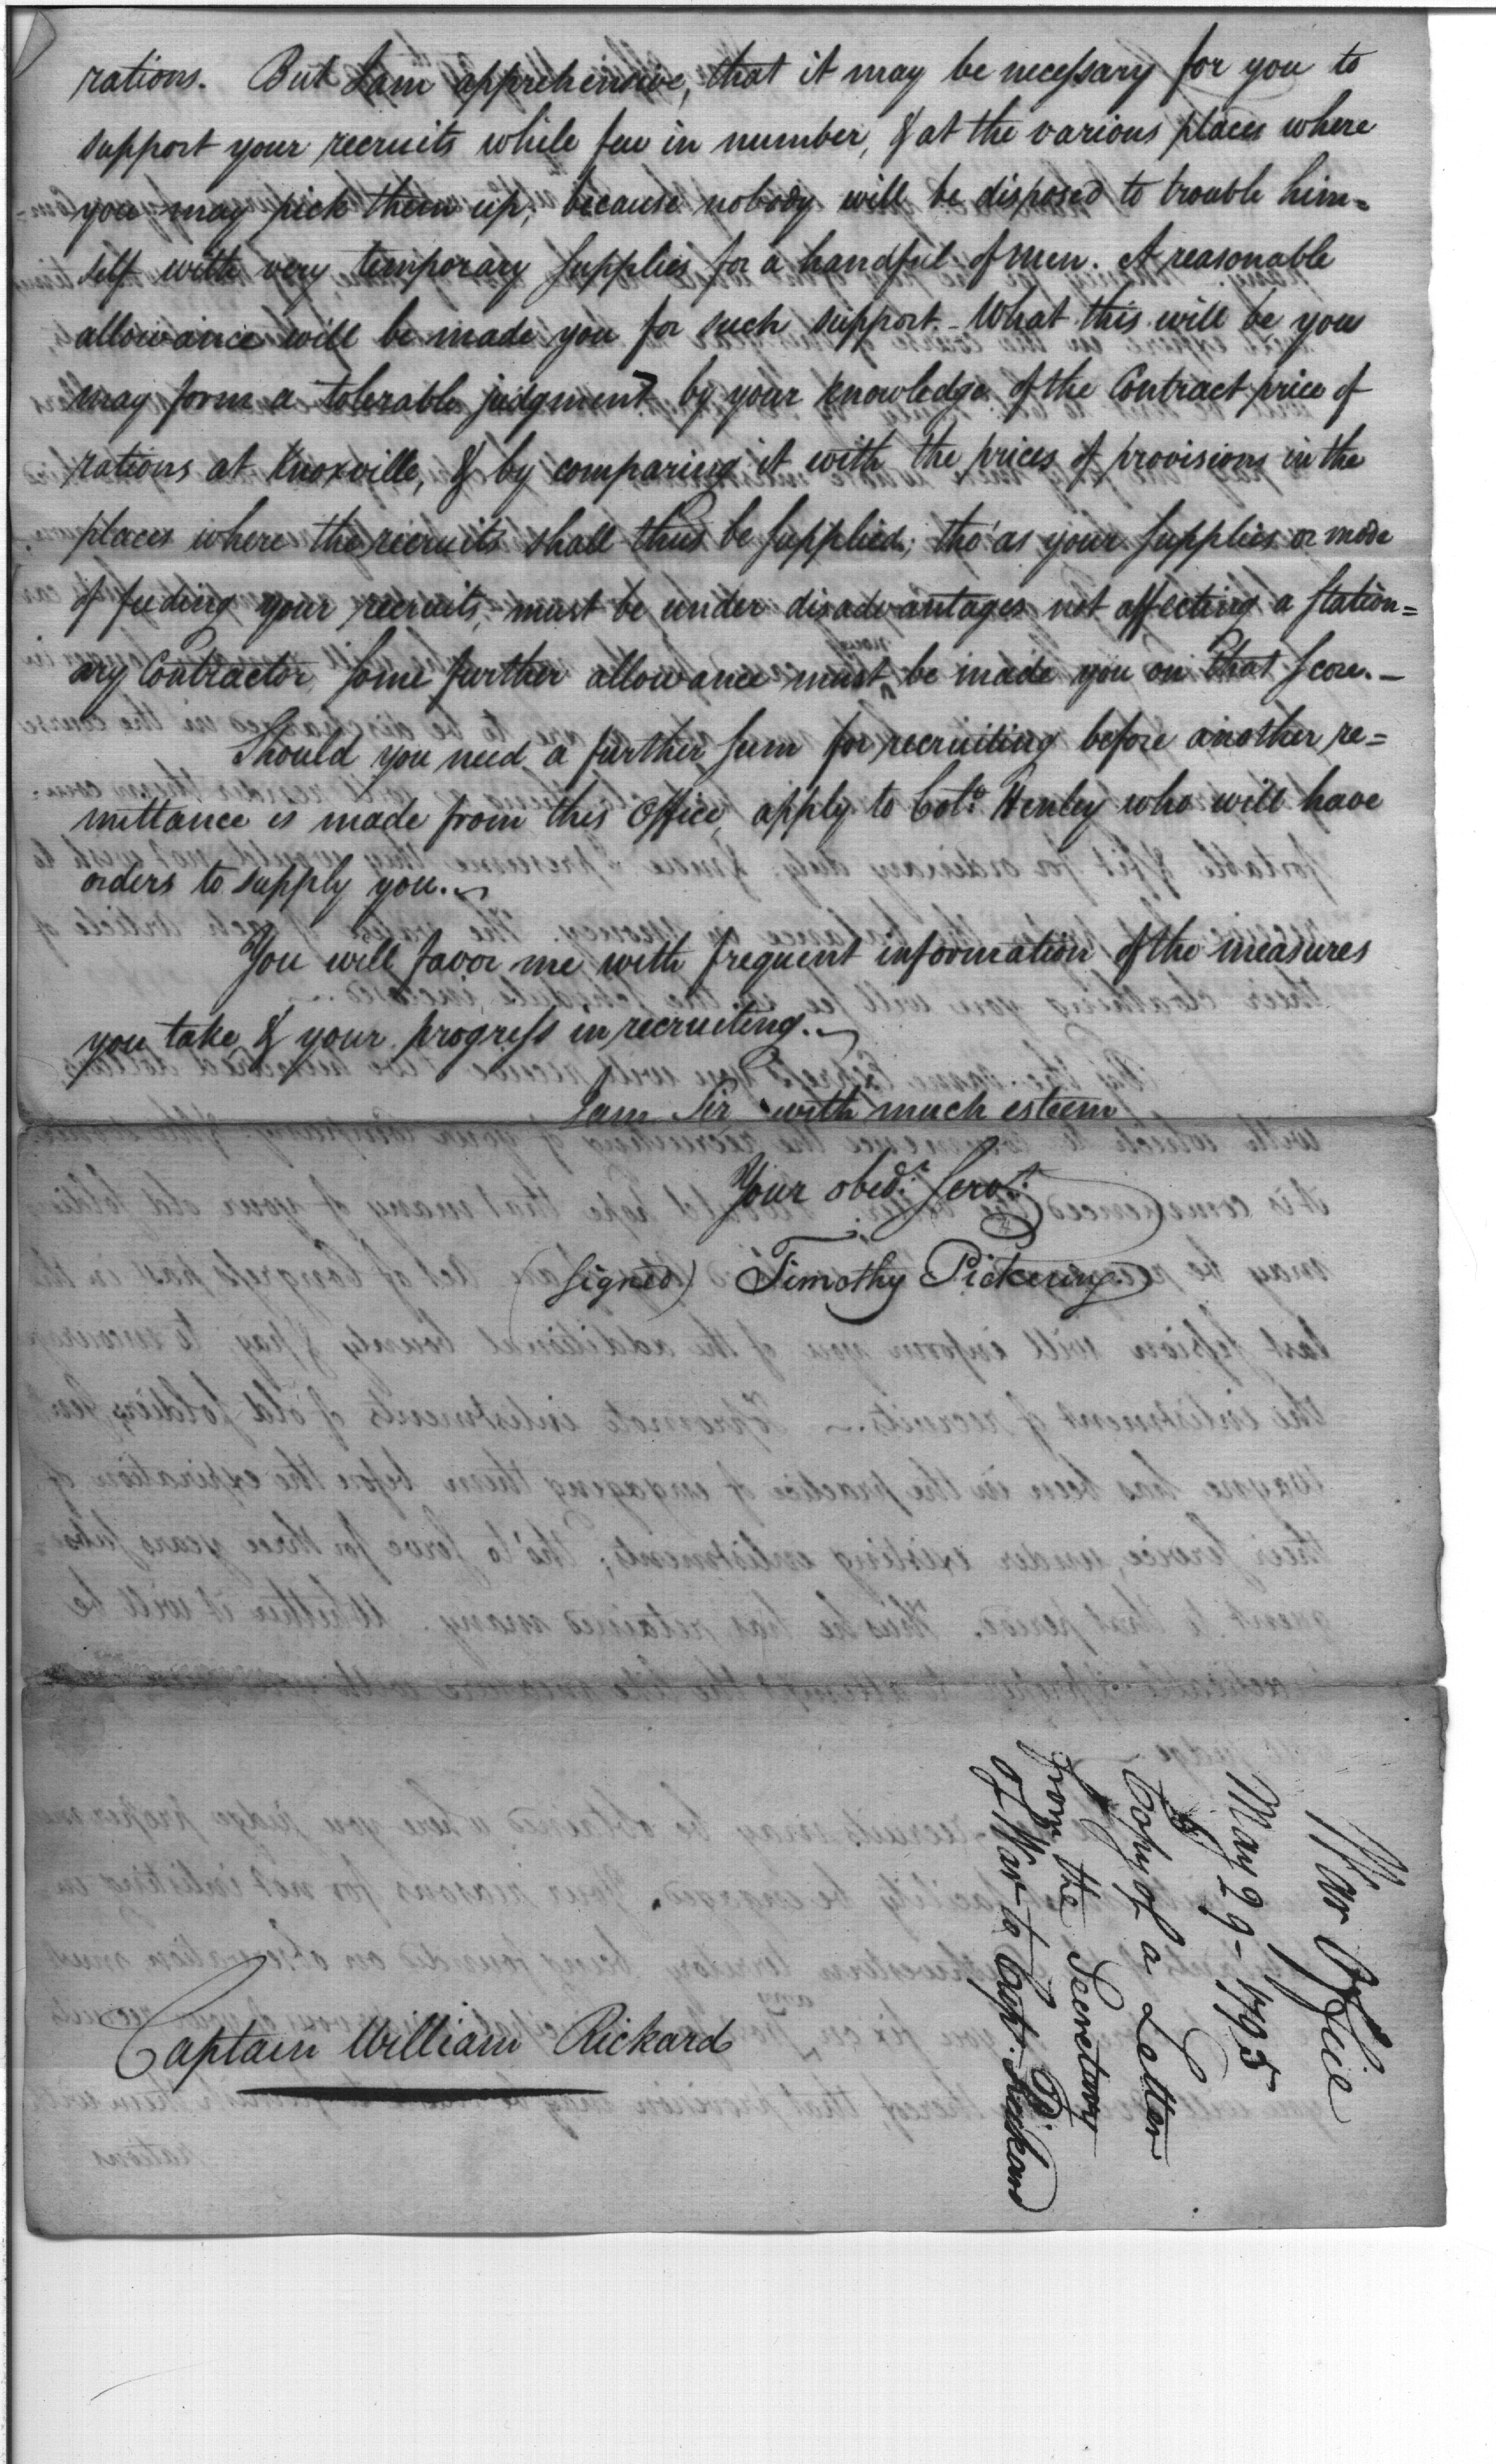 rations. But I am apprehensive, that it may be necessary for you to
support your recruits while few in number, & at the various places where
you may pick them up; because nobody will be disposed to trouble him=
self with very temporary supplies for a handful of men. A reasonable
allowance will be made you for such support. - What this will be you
may form a tolerable judgment by your knowledge of the Contract price of
rations at Knoxville, & by comparing it with the prices of provisions in the
places where the recruits shall thus be supplied; tho' as your supplies or mode
of feeding your recruits, must be under disadvantages not affecting a station=
ary Contractor some further allowance must be made you on that score. -
Should you need a further sum for recruiting before another re=
mittance is made from this Office, apply to Colo. Henley who will have
orders to supply you.
You will favor me with frequent information of the measures
you take & your progress in recruiting.
I am Sir with much esteem
Your obedt. Servt.
(signed) Timothy Pickering.
War Office
May 29 - 1795
Copy of a Letter
from the Secretary
of War to Capt. Rickard
Captain William Rickard